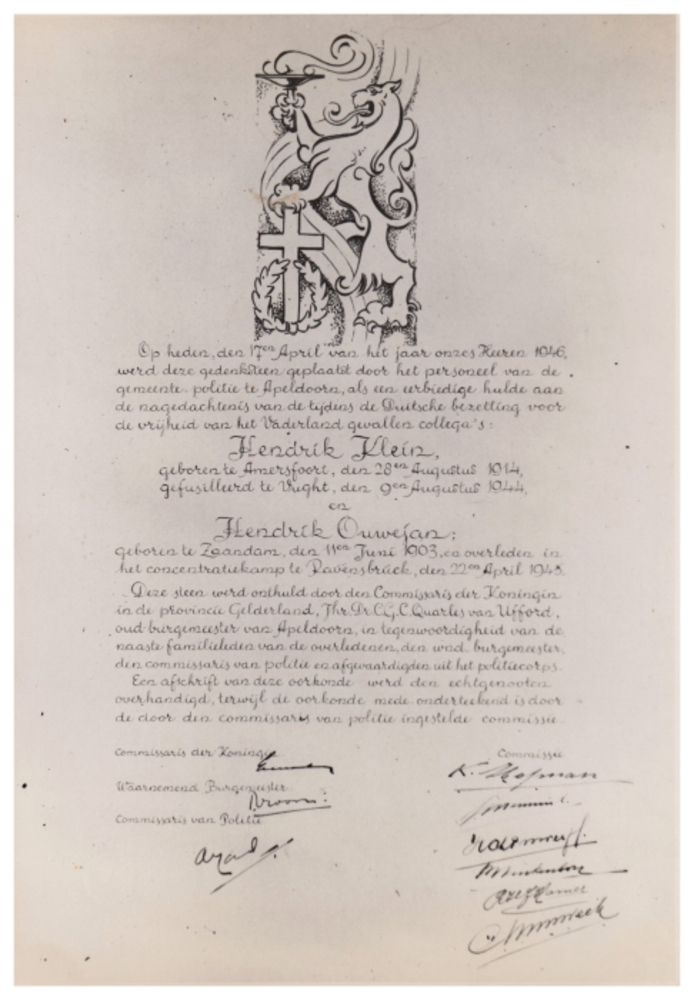 Op heden, den 17en April van het jaar onzes Heeren 1946,
werd deze gedenksteen geplaatst door het personeel van de
gemeente-politie te Apeldoorn, als een eerbiedige hulde aan
de nagedachtenis van de tijdens de Duitsche bezetting voor
de vrijheid van het Vaderland gevallen collega's:
Hendrik Klein,
geboren te Amersfoort, den 28en Augustus 1914,
gefusilleerd te Vught, den 9en Augustus 1944,
en
Hendrik Ouwejan;
geboren te Zaandam, den 11en Juni 1903, en overleden in
het concentratiekamp te Ravensbrück, den 22en April 1945.
Deze steen werd onthuld door den Commissaris der Koningin
in de provincie Gelderland, Jhr. Dr. C.G.C. Quarles van Ufford,
oud-burgemeester van Apeldoorn, in tegenwoordigheid van de
naaste familieleden van de overledenen, den wnd. burgemeester,
den commissaris van politie en afgevaardigden uit het politiecorps.
Een afschrift van deze oorkonde werd den echtgenooten
overhandigd, terwijl de oorkonde mede onderteekend is door
de door den commissaris van politie ingestelde commissie.
Commissaris der Koningin
Waarnemend Burgemeester
Commissaris van Politie
Commissie
K. Hofman